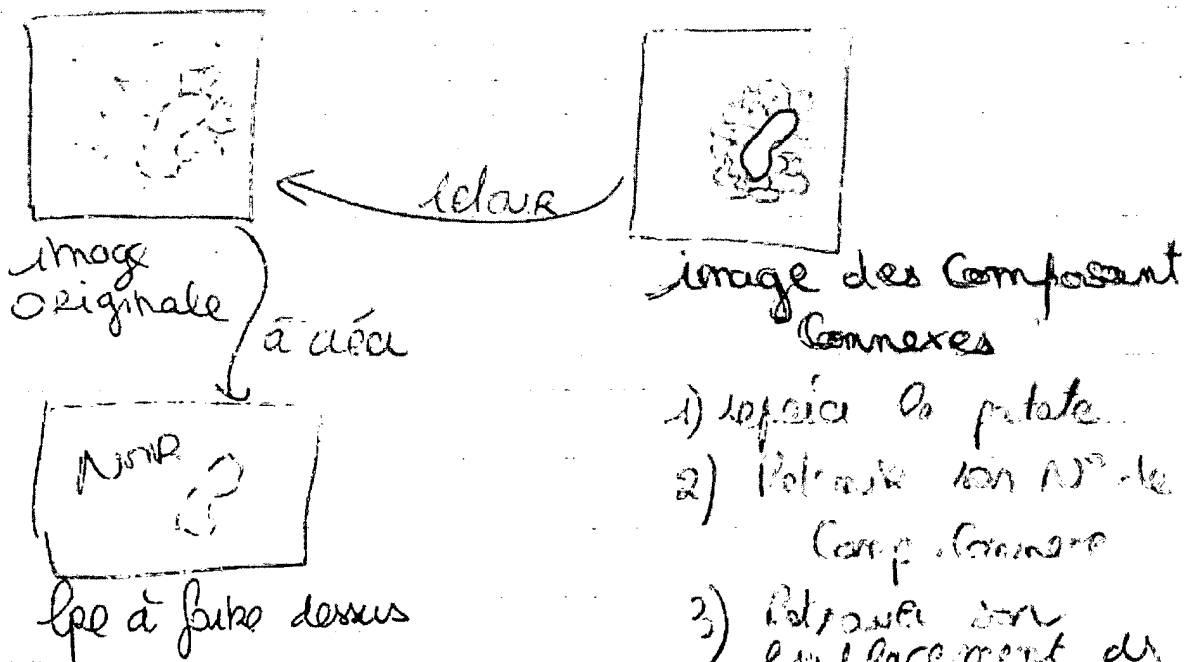 retour
image
originale
à créer
image des Composant
Connexes
Noir
à faire dessus
1) repérer la patate
2) Retrouve son N° de
Comp. Connexe
3) Retrouver son
emplacement ds